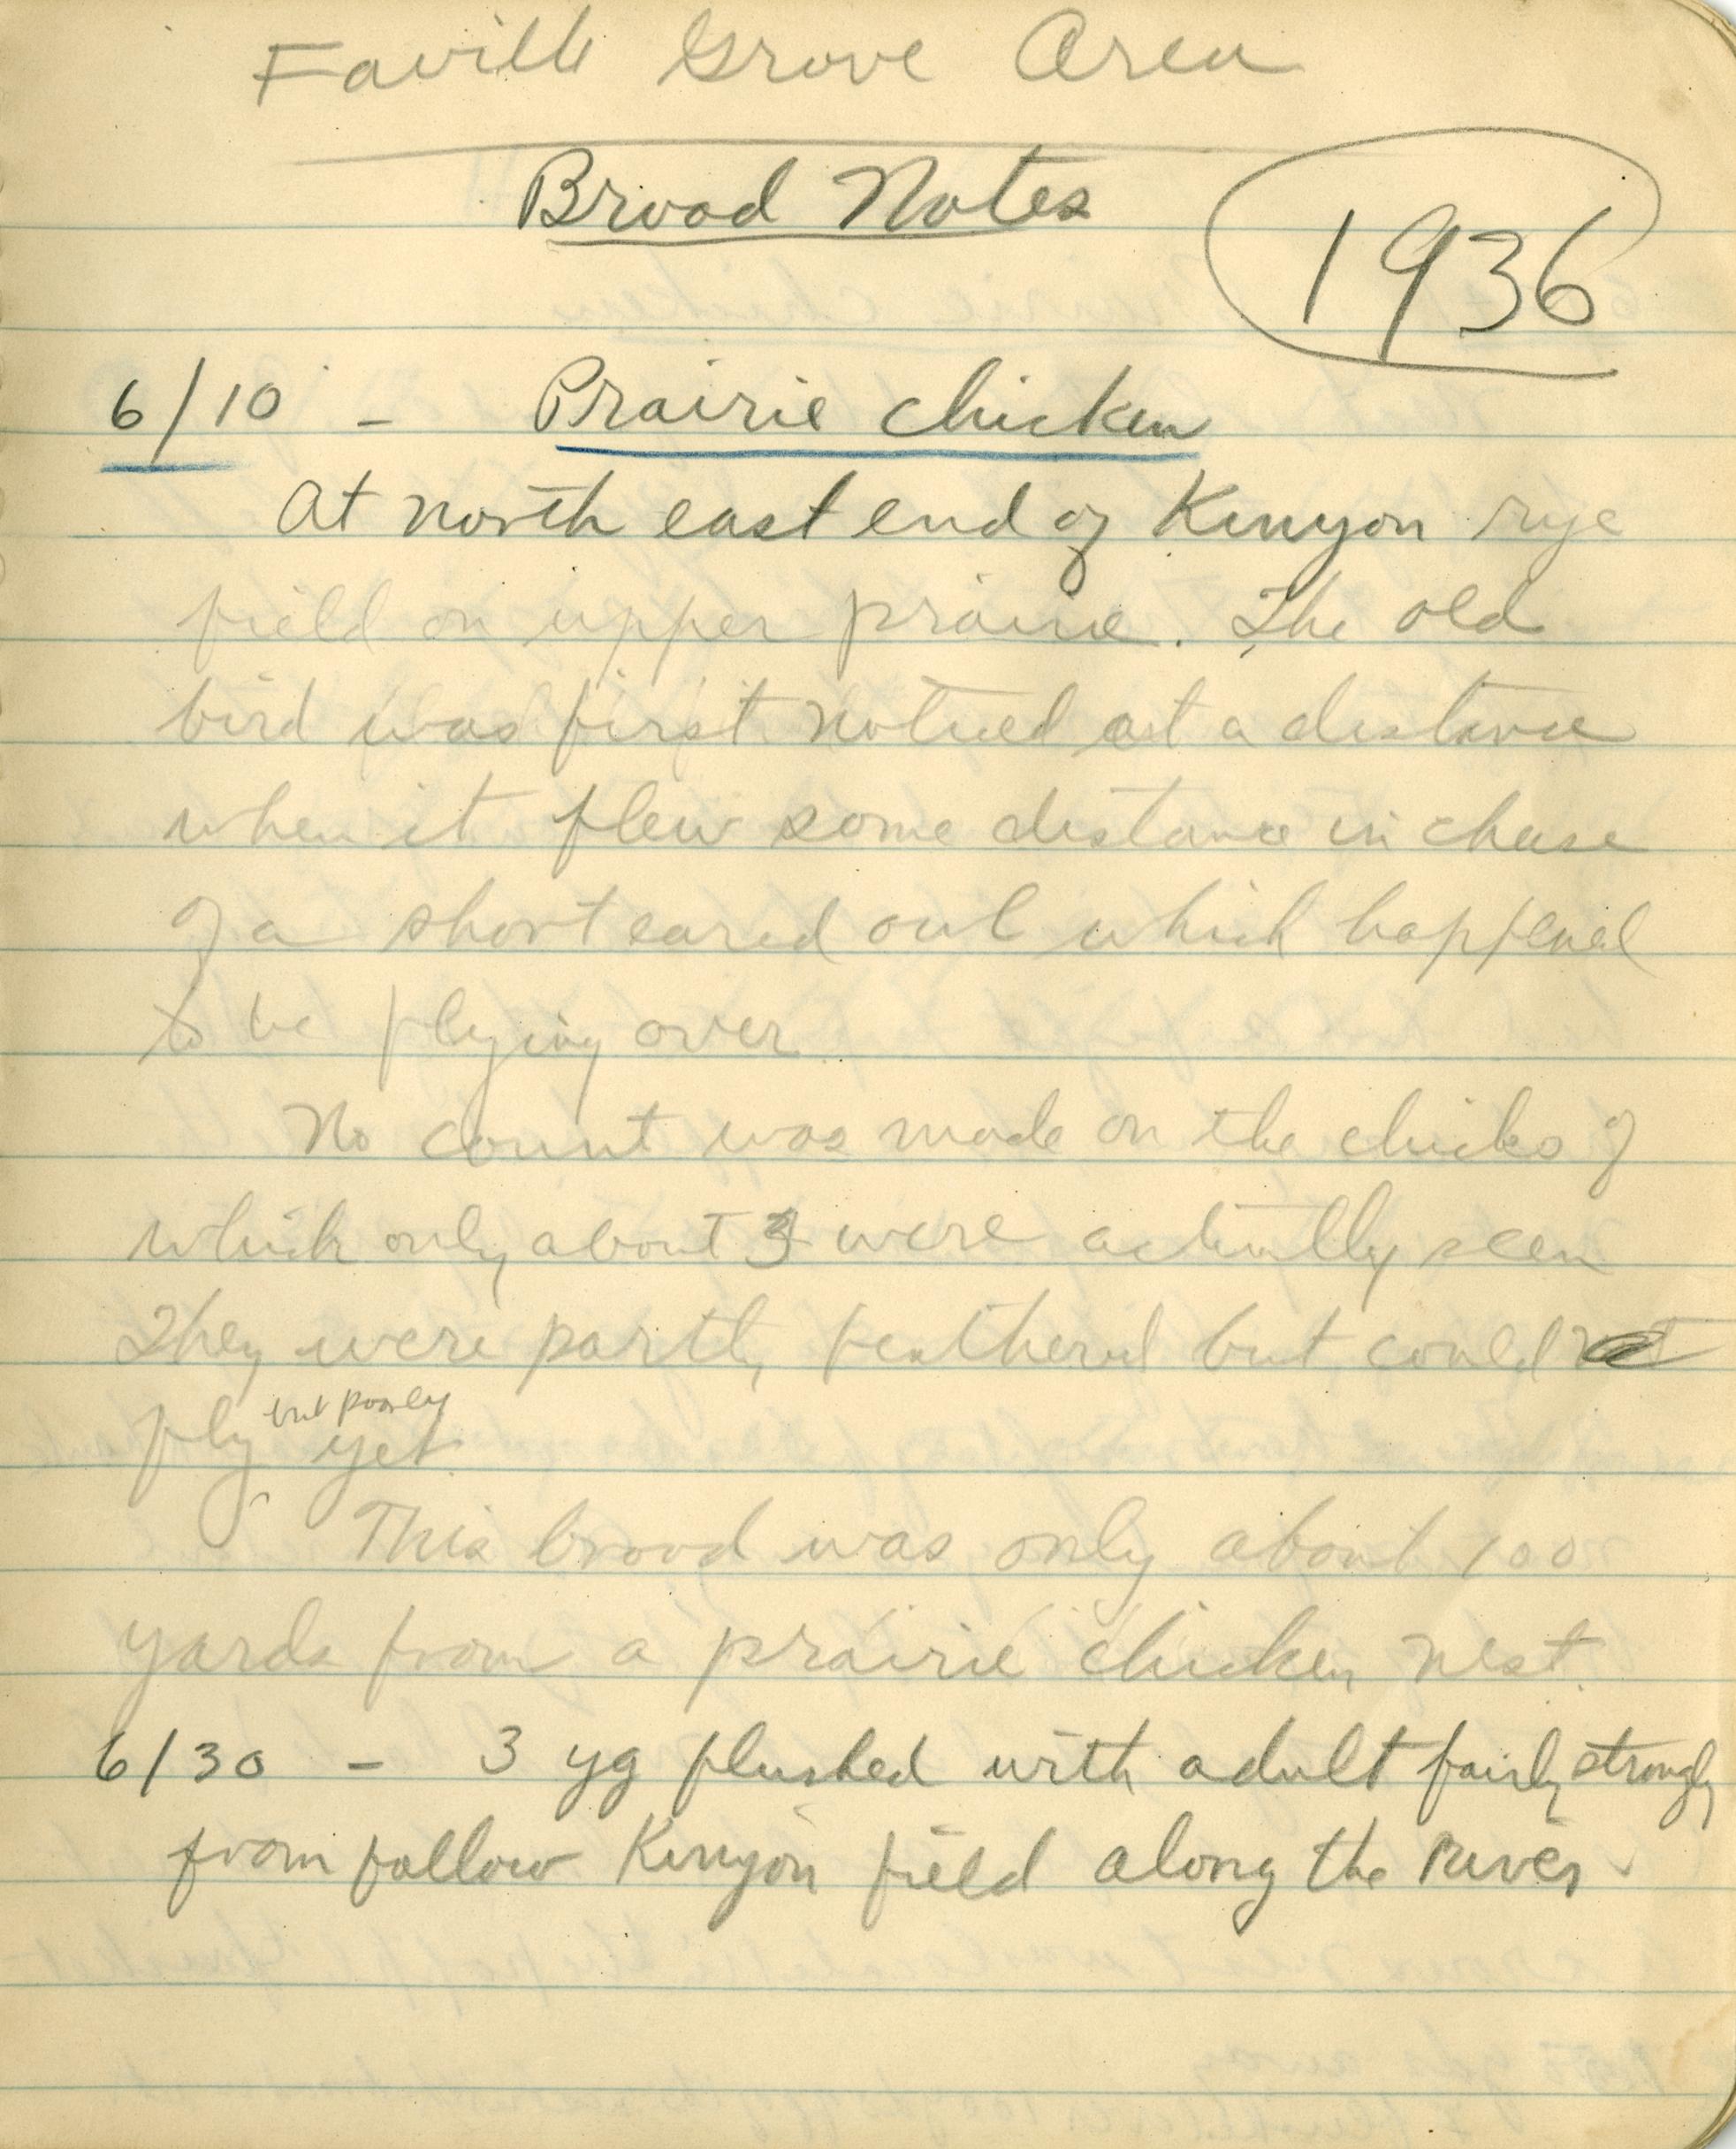 Faville Grove Area
Brood Notes
1936
6/10 - Prairie chicken
At north east end of Kenyon rye
field on upper prairie. The old
bird was first noticed at a distance
when it flew some distance in chase
of a short eared owl which happened
to be flying over
No count was made on the chicks of
which only about 3 were actually seen
They were partly feathered but could
but poorly
fly yet.
This brood was only about 100
yards from a prairie chicken nest.
6/30 - 3 yg flushed with adult fairly strongly
from fallow Kenyon field along the River.